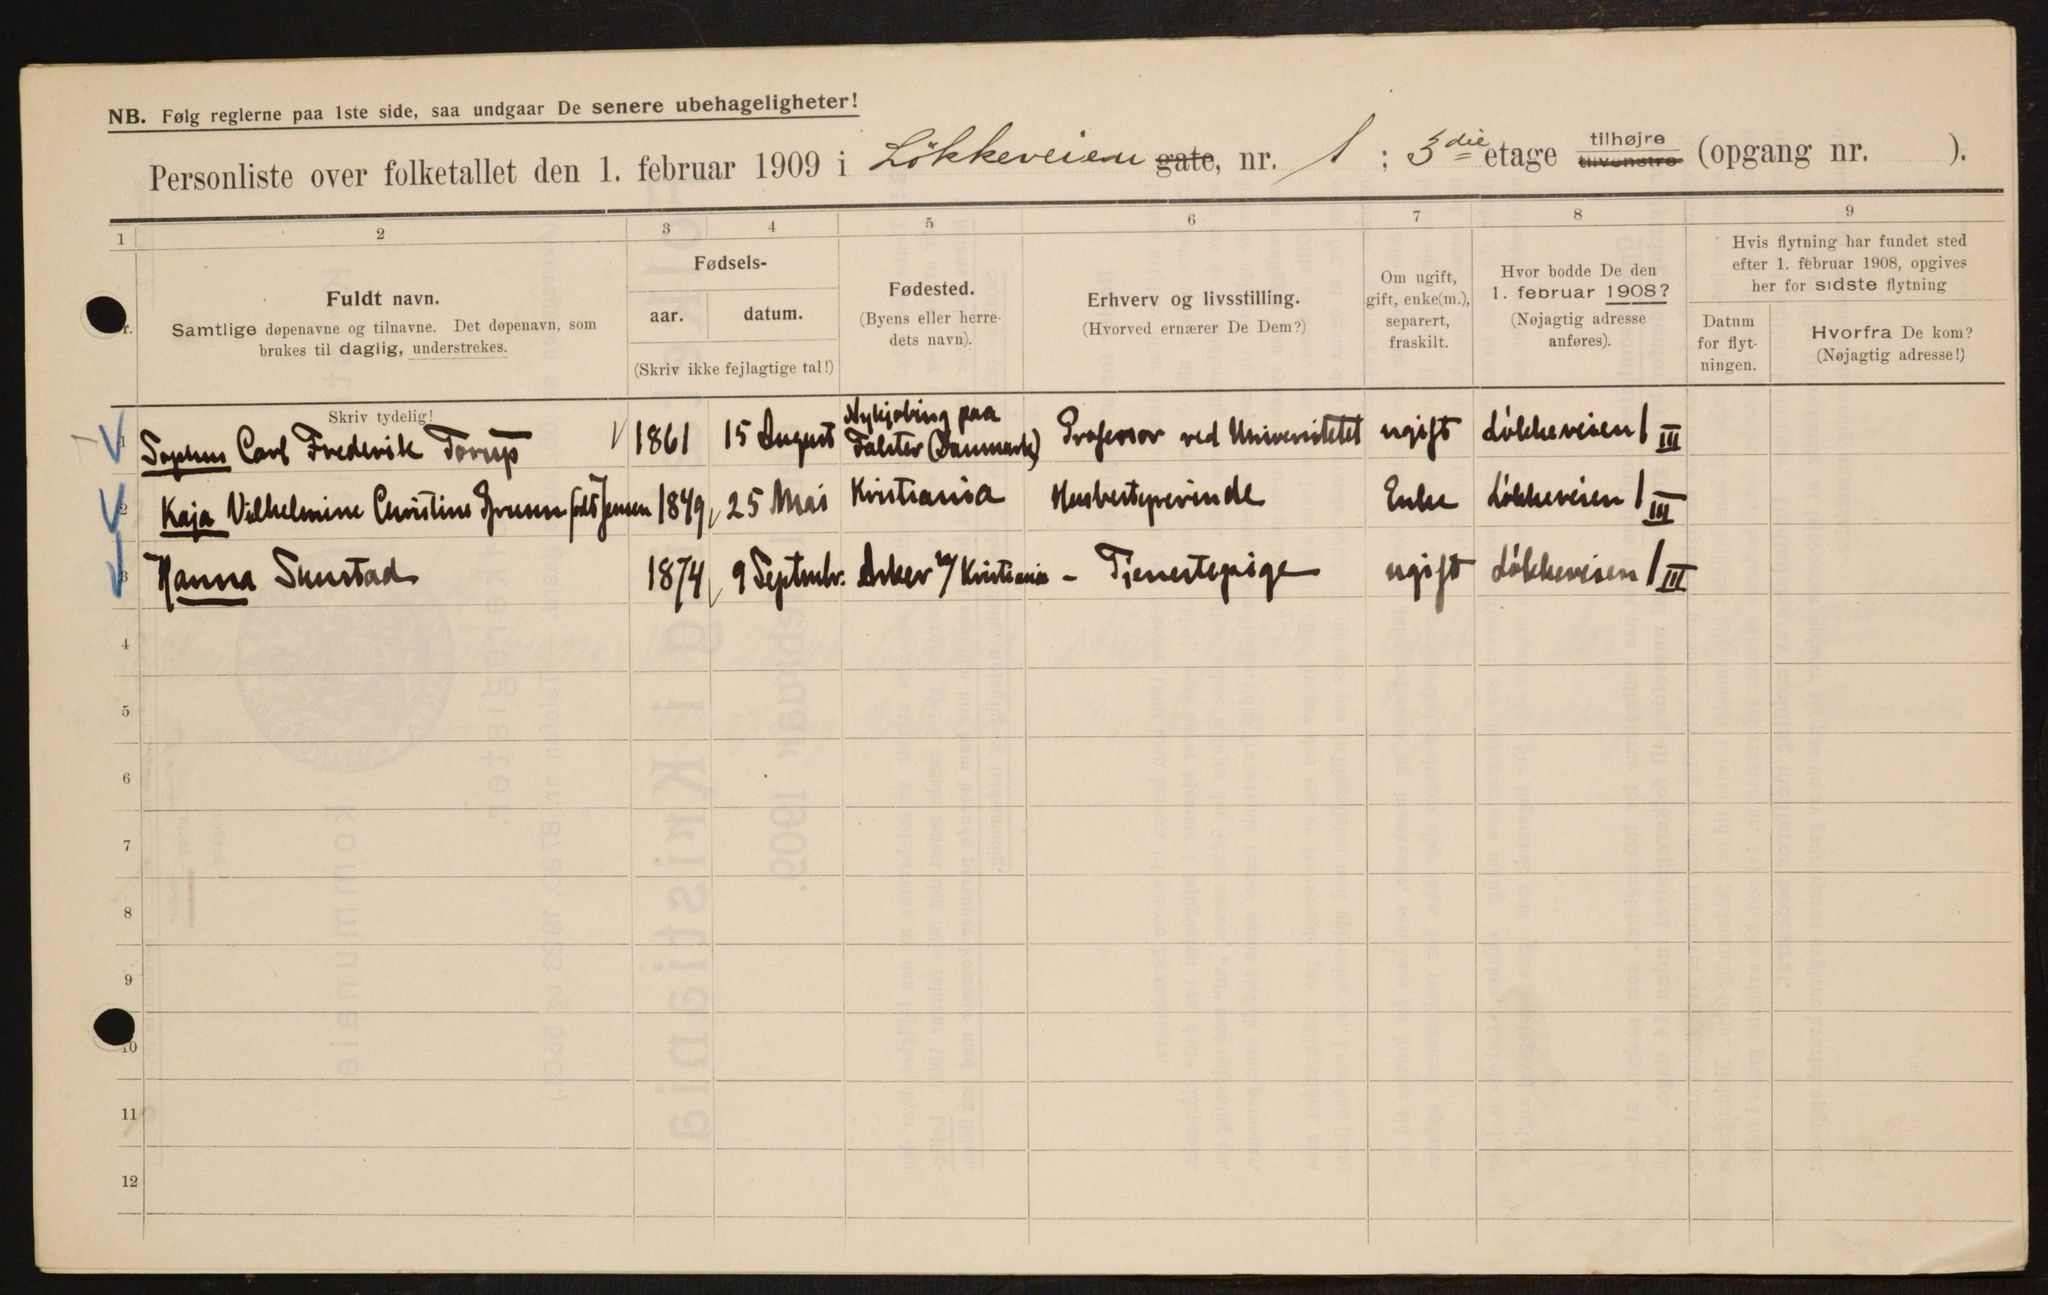 NB. Følg reglerne paa 1ste side, saa undgaar De senere ubehageligheter!
Personliste over folketallet den 1. februar 1909 i Løkkeveien gate, nr. 1 ; 3die etage tilhøjre tilvenstre (opgang nr. ).
1 2 3 4 5 6 7 8 9
r.
Fuldt navn.
Samtlige døpenavne og tilnavne. Det døpenavn, som
brukes til daglig, understrekes.
Skriv tydelig!
Fødsels-
aar. datum.
(Skriv ikke fejlagtige tal!)
Fødested.
(Byens eller herre-
dets navn).
Erhverv og livsstilling.
(Hvorved ernærer De Dem?)
Om ugift,
gift, enke(m.),
separert,
fraskilt.
Hvor bodde De den
1. februar 1908?
(Nøjagtig adresse
anføres).
Hvis flytning har fundet sted
efter 1. februar 1908, opgives
her for sidste flytning
Datum
for flyt-
ningen.
Hvorfra De kom?
(Nøjagtig adresse!)
1 Sophus Carl Frederik Torup 1861 15 August Nykjøbing paa
Falster (Danmark) Professor ved Universitetet ugift Løkkeveien 1 III
2 Kaja Vilhelmine Christine født Jensen 1849 25 Mai Kristiania Husbestyrerinde Enke Løkkeveien 1 III
3 Hanna 1874 9 Septmbr. Asker v/ Kristiania - Tjenestepige ugift Løkkeveien 1 III
4
5
6
7
8
9
10
11
12